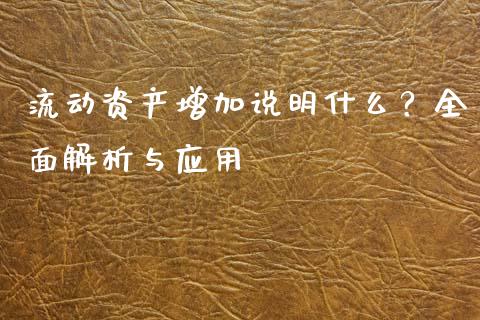 流动资产增加说明什么？全
面解析与应用